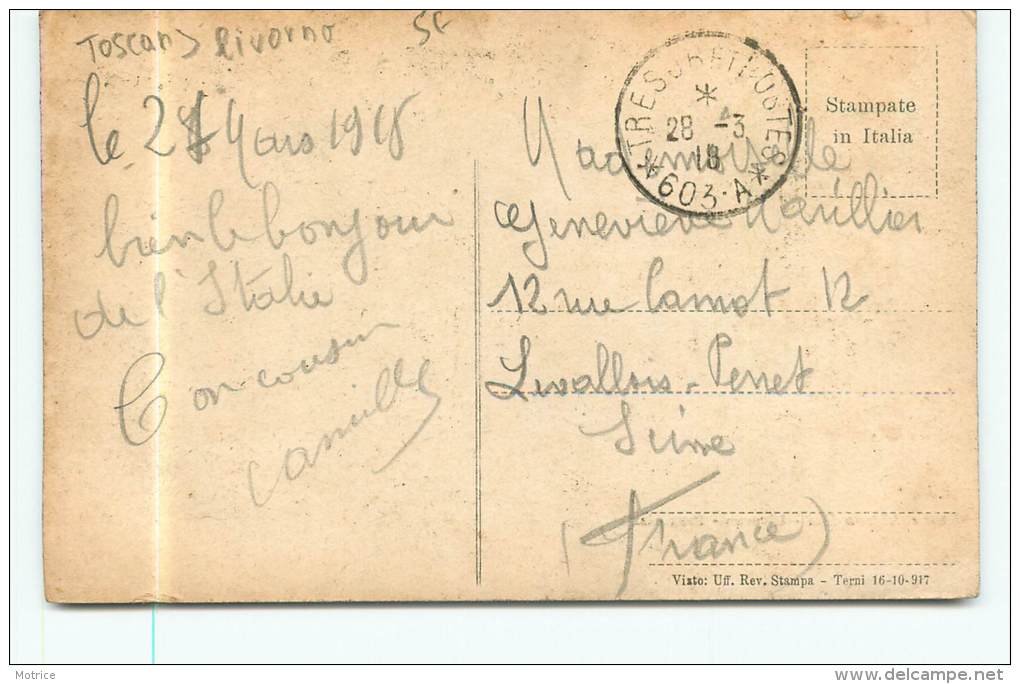 Toscan> Livorno 5€
le 28 Mars 1918
bien le bonjour
de l'Italie
Ton cousin
Camille
TRESOR ET POSTES
28 -3
18
603·A
Stampate
in Italia
Mademoiselle
Geneviève
12 rue Carnot 12
Levallois-Perret
Seine
(France)
Visto: Uff. Rev. Stampa - Terni 16-10-917
Motrice
delcampe.net